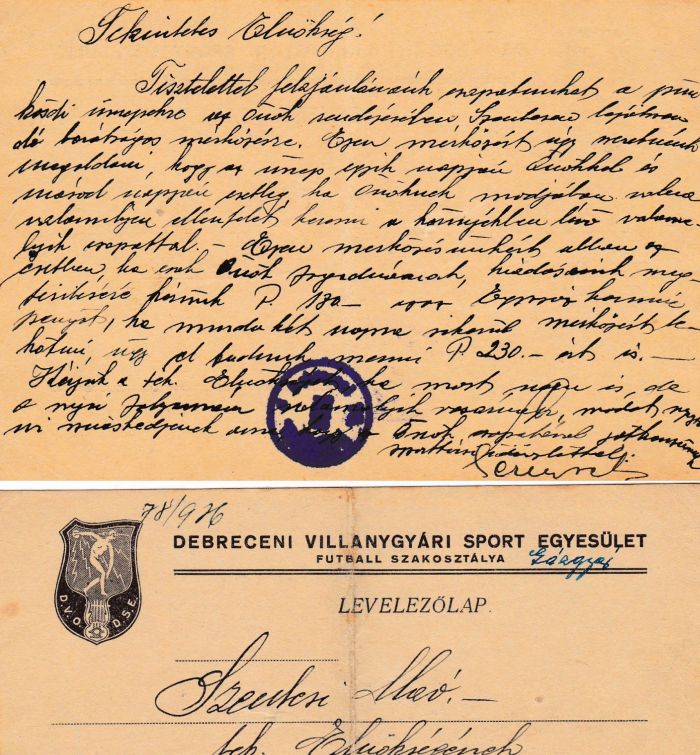 Tekintetes Elnökség!
Tisztelettel felajánlanánk csapatunkat a pün
kösdi ünnepekre az Önök rendezésében Szentesen lejátszan
dó barátságos mérkőzésre. Ezen mérkőzést úgy szeretnénk
megoldani, hogy az ünnep egyik napján Önökkel és
másod napján esetleg ha Önöknek módjában volna
valamilyen ellenfelet hozna a környékben levő valame-
lyik csapattal. – Ezen mérkőzésünkért abban az
esetben, ha csak Önök fogadnának, kiadásaink meg
térítésére kérünk P. 130 –
pengőt, ha mindakét napra sikerül mérkőzést le
kötni, úgy el tudunk menni P. 230.– ért is. –
Kérjük a tek. Elnökséget ha most nem is, de
a nyári folyamán valamelyik vasárnap, módot nyúj
Önök csapatával játhassunk
78/926
DEBRECENI VILLANYGYÁRI SPORT EGYESÜLET
FUTBALL SZAKOSZTÁLYA
D.V.O. D.S.E.
LEVELEZŐLAP.
Szentesi Máv. –
tek. Elnökségének